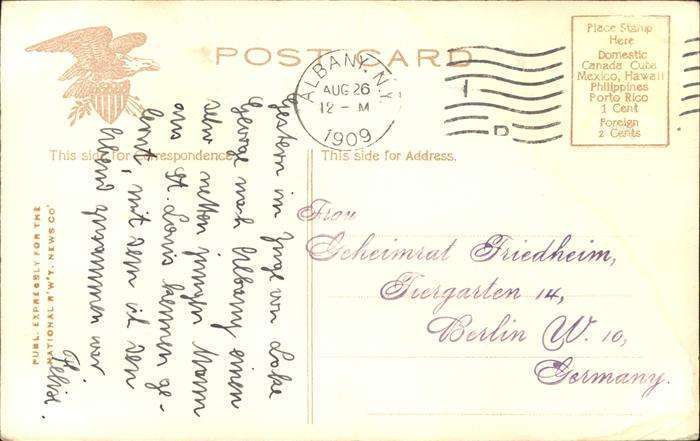 POST CARD
ALBANY, N.Y.
AUG 26
12 - M
1909
1
D
Place Stamp
Here
Domestic
Canada Cuba
Mexico, Hawaii
Philippines
Porto Rico
1 Cent
Foreign
2 Cents
This side for Correspondence
This side for Address.
PUBL. EXPRESSLY FOR THE
NATIONAL R'W'Y. NEWS CO'
Gestern im Zuge von Lake
George nach Albany einen
sehr netten jungen Mann
aus St. Louis kennen ge-
lernt, mit dem ich den
Abend zusammen war
Felix.
Frau
Geheimrat Friedheim,
Tiergarten 14,
Berlin W. 10,
Germany.